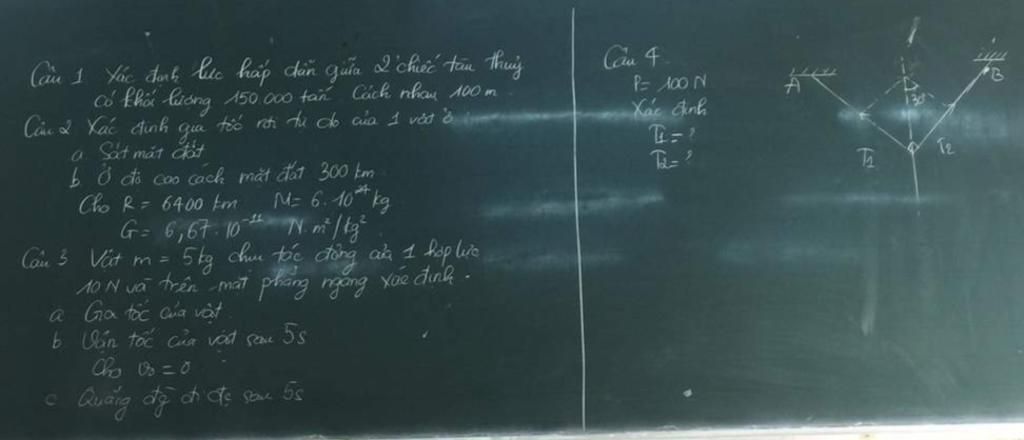 Câu 1 Xác định lực hấp dẫn giữa 2 chiếc tàu thuỷ
có khối lượng 150 000 tấn Cách nhau 100 m
Câu 2 Xác định gia tốc rơi tự do của 1 vật ở
a. Sát mặt đất
b. Ở độ cao cách mặt đất 300 km
Cho R = 6400 km M = 6.10²⁴ kg
G = 6,67.10⁻¹¹ N.m²/kg²
Câu 3 Vật m = 5 kg chịu tác động của 1 hợp lực
10 N và trên mặt phẳng ngang xác định.
a Gia tốc của vật
b. Vận tốc của vật sau 5s
Cho v₀ = 0
c Quãng đg đi đc sau 5s
Câu 4
P = 100 N
Xác định
T₁ = ?
T₂ = ?
A
B
T₁
T₂